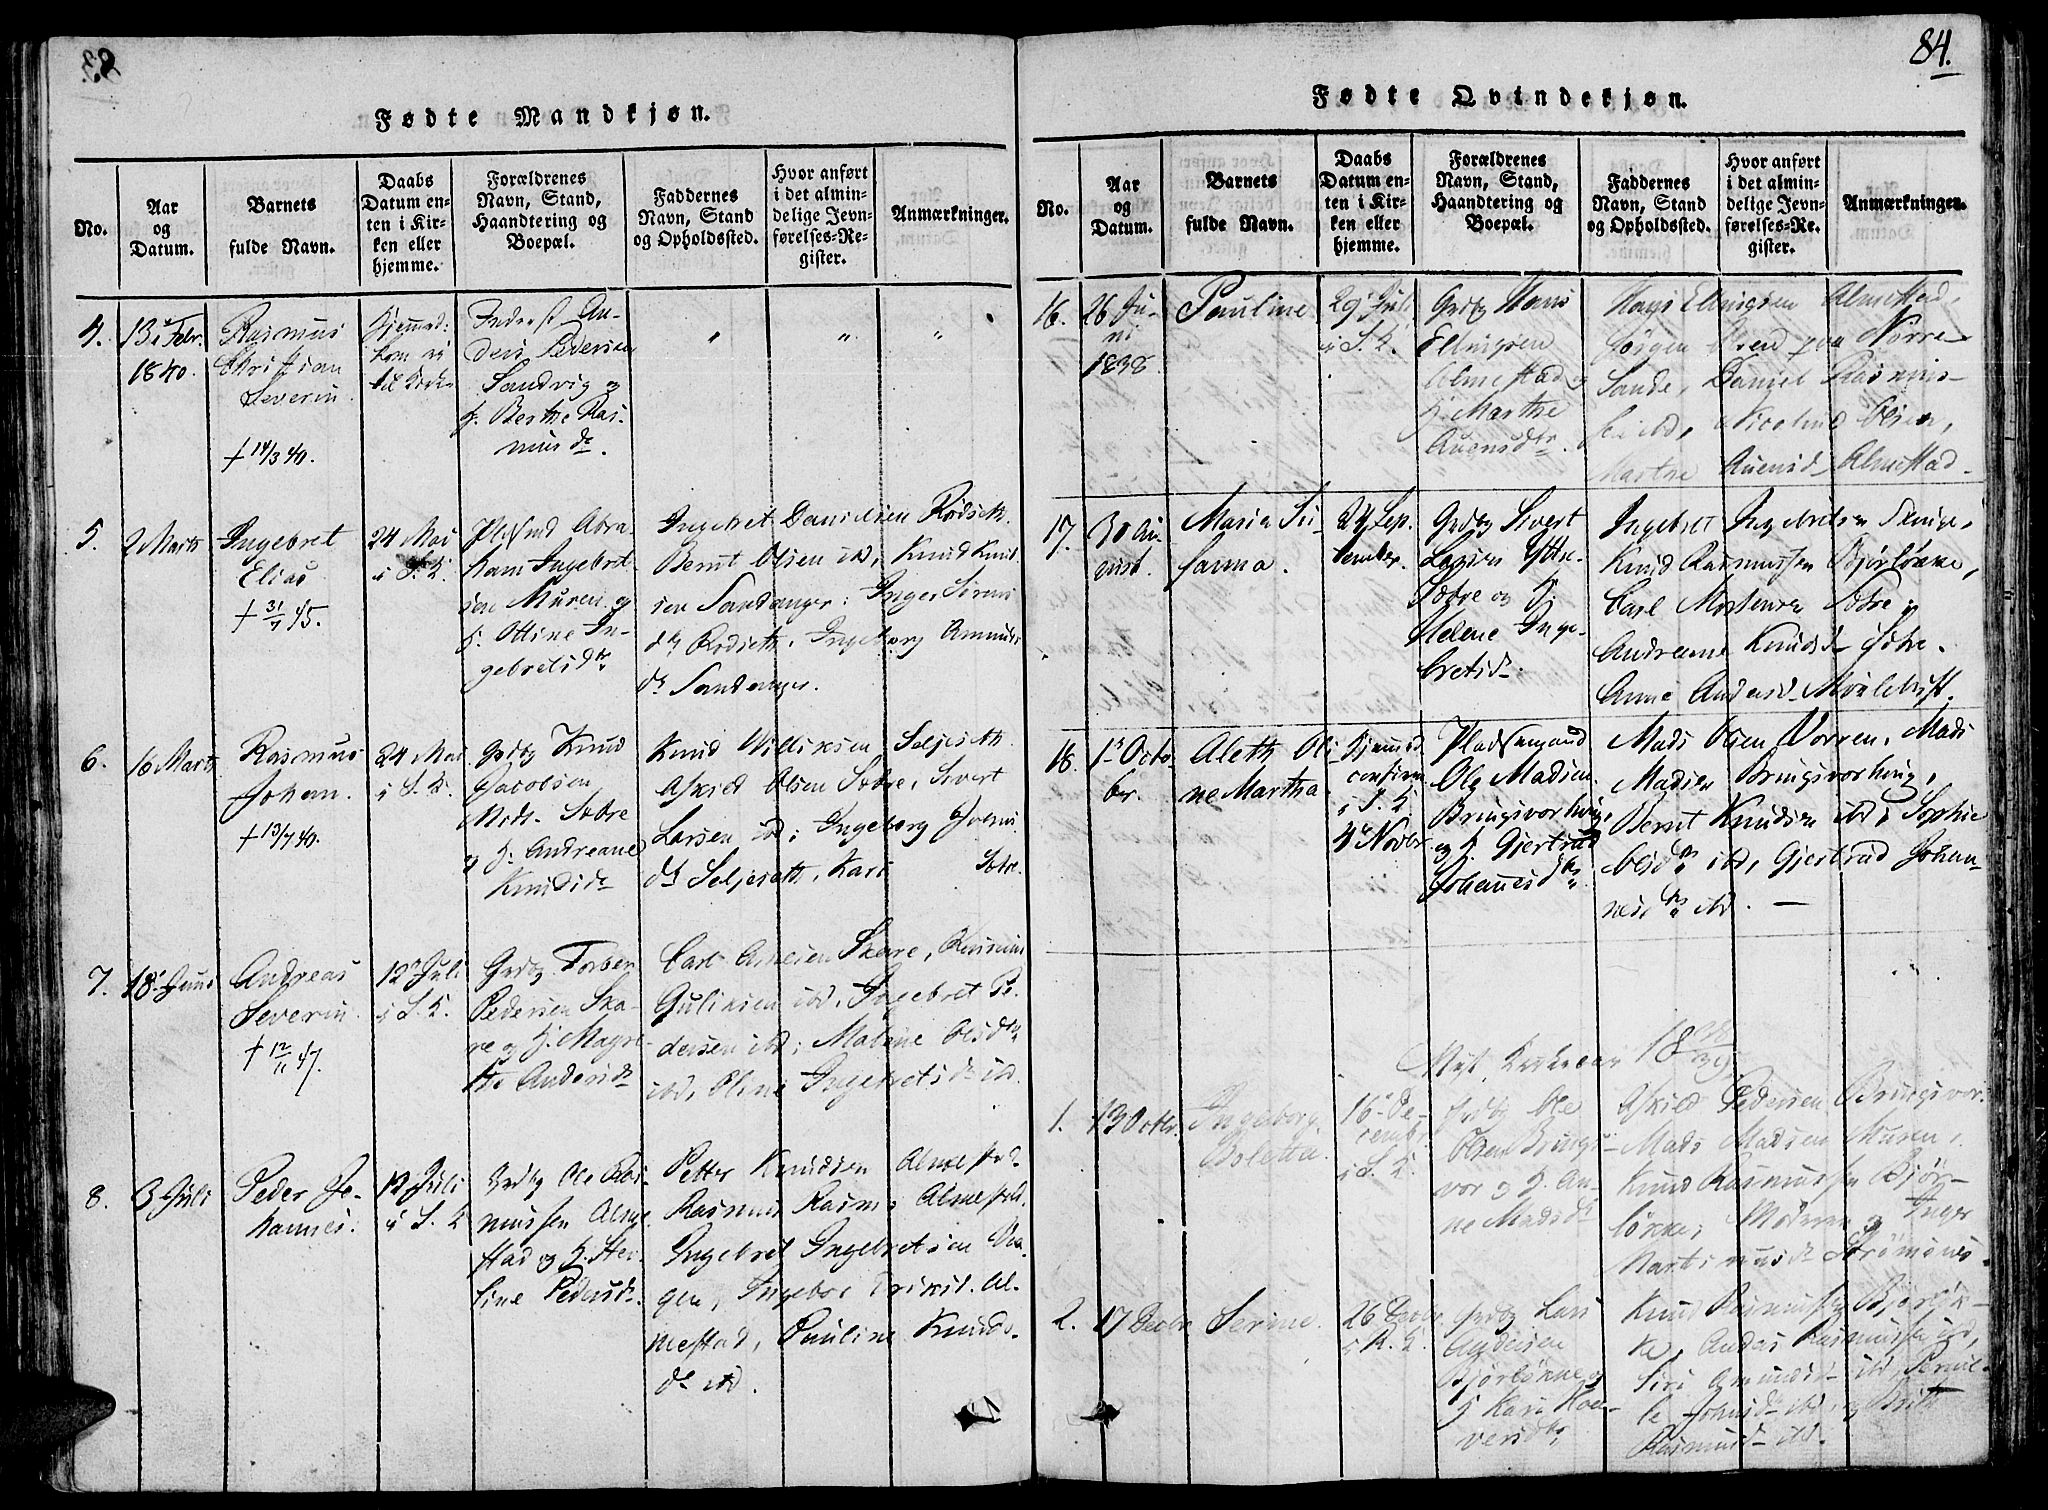 Fødte Mandkjøn.
No.
Aar
og
Datum.
Barnets
fulde Navn.
Daabs
Datum en-
ten i Kir-
ken eller
hjemme.
Forældrenes
Navn, Stand,
Haandtering og
Boepæl.
Faddernes
Navn, Stand
og Opholdssted.
Hvor anført
i det almin-
delige Jevn-
førelses-Re-
gister.
Anmærkninger.
4.
13 Febr.
1840.
Rasmus
Christian
Severin
† 14/3 40.
Hjemmed:
kom ei
til Kirke
Inderst An-
ders Pedersen
Sandvig og
H. Berthe Ras-
musd.
"
"
"
5.
2 Marts
Ingebret
Elias
† 31/7 45.
24 Mai
i S. K.
Plsmd Abra
ham Ingebret
sen Muren og
H. Ottine In-
gebretsdr
Ingebret Danielsen Rødseth.
Bernt Olsen ibd, Knud Knud
sen Sandanger: Inger Sivers
dr Rødseth, Ingeborg Amunds
dr Sandanger.
6.
16 Marts
Rasmus
Johan.
† 13/7 40.
24 Mai
i S. K.
Grdbg Knud
Jacobsen
Mdt. Sætre
og H. Andreane
Knudsdr
Knud Villiksen Seljeseth
Askild Olsen Sætre, Sivert
Larsen ibd; Ingeborg Joens
dr Seljeseth, Kari Sætre.
7.
18 Juni
Andreas
Severin
† 12/11 47.
12 Juli
i S. K.
Grdbg Torber
Pedersen Ska-
re og H. Magre-
the Andersdr
Carl Arnesen Skare, Rasmus
Guliksen ibd, Ingebret Pe-
dersen ibd; Malene Olsdtr
ibd, Oline Ingebretsdr ibd.
8.
3 Juli
Peder Jo-
hannes.
12 Juli
i S. K
Grdbg Ole Ras-
mussen Alme
stad og H. Ster-
line Pedersdr
Petter Knudsen Almestad
Rasmus Rasms Almestad.
Ingebret Ingebretsen Vaa-
gen, Ingebor Eriksd. Al-
mestad, Pauline Knuds-
dr ibd.
84.
Fødte Qvindekjøn.
No.
Aar
og
Datum.
Barnets
fulde Navn.
Daabs
Datum en-
ten i Kir-
ken eller
hjemme.
Forældrenes
Navn, Stand,
Haandtering og
Boepæl.
Faddernes
Navn, Stand
og Opholdssted.
Hvor anført
i det almin-
delige Jevn-
førelses-Re-
gister.
Anmærkninger.
16.
26 Ju-
ni
1838
Pauline
29 Juli
i S. K.
Grdbg Hans
Ellingsen
Almestad og
H. Marthe
Auensdtr.
Hans Ellingsen Almestad,
Jørgen Olsen paa Nørre
Sande, Daniel Rasmus-
sen ibd, Nicoline Olsen,
Marthe Auensd Almestad.
17.
30 Au-
gust.
Maria Su-
sanna.
24 Sep-
tember.
Grdbg Sivert
Larsen Ytre-
Sætre og H.
Helene Inge-
bretsd.
Ingebret Ingebretsen Fluge,
Knud Rasmussen Bjørløkke,
Carl Mortensen Sætre og
Andreane Knudsd Sætre.
Anne Andersd
18.
1 Octo-
ber.
Aleth Oli
ne Martha
Hjemmed
confirm
i S. K
4 Novbr.
Pladsemand
Ole Madsen
Bringsvorhaug
og H. Gjertrud
Johannesdtr
Mads Olsen Vorren, Mads
Madsen Bringsvorhaug,
Bernt Knudsen ibd; Sophie
Olsdtr ibd, Gjertrud Johan-
nesdtr ibd. —
Nyt Kirkeaar 1838/39
1.
13 Octbr.
Ingeborg
Boletta.
16 De-
cembr.
i S. K
Grdbg Ole
Olsen Brings-
vor og H. An-
ne Madsd
Askild Pedersen Bringsvor.
Mads Madsen Muren,
Knud Rasmussen Bjør-
løkke; Moderen og Inger
Martinusd Strømsnes
2.
17 Decbr
Serine.
26 Decbr
i R. K.
Grdbg Lars
Andersen
Bjørløkke og
H Kari Hal-
versdtr
Knud Rasmussen Bjørløk-
ke, Andas Rasmussen ibd,
Siri Amundsd ibd, Pernil-
le Johnsd ibd, og Brith
Rasmusd ibd.